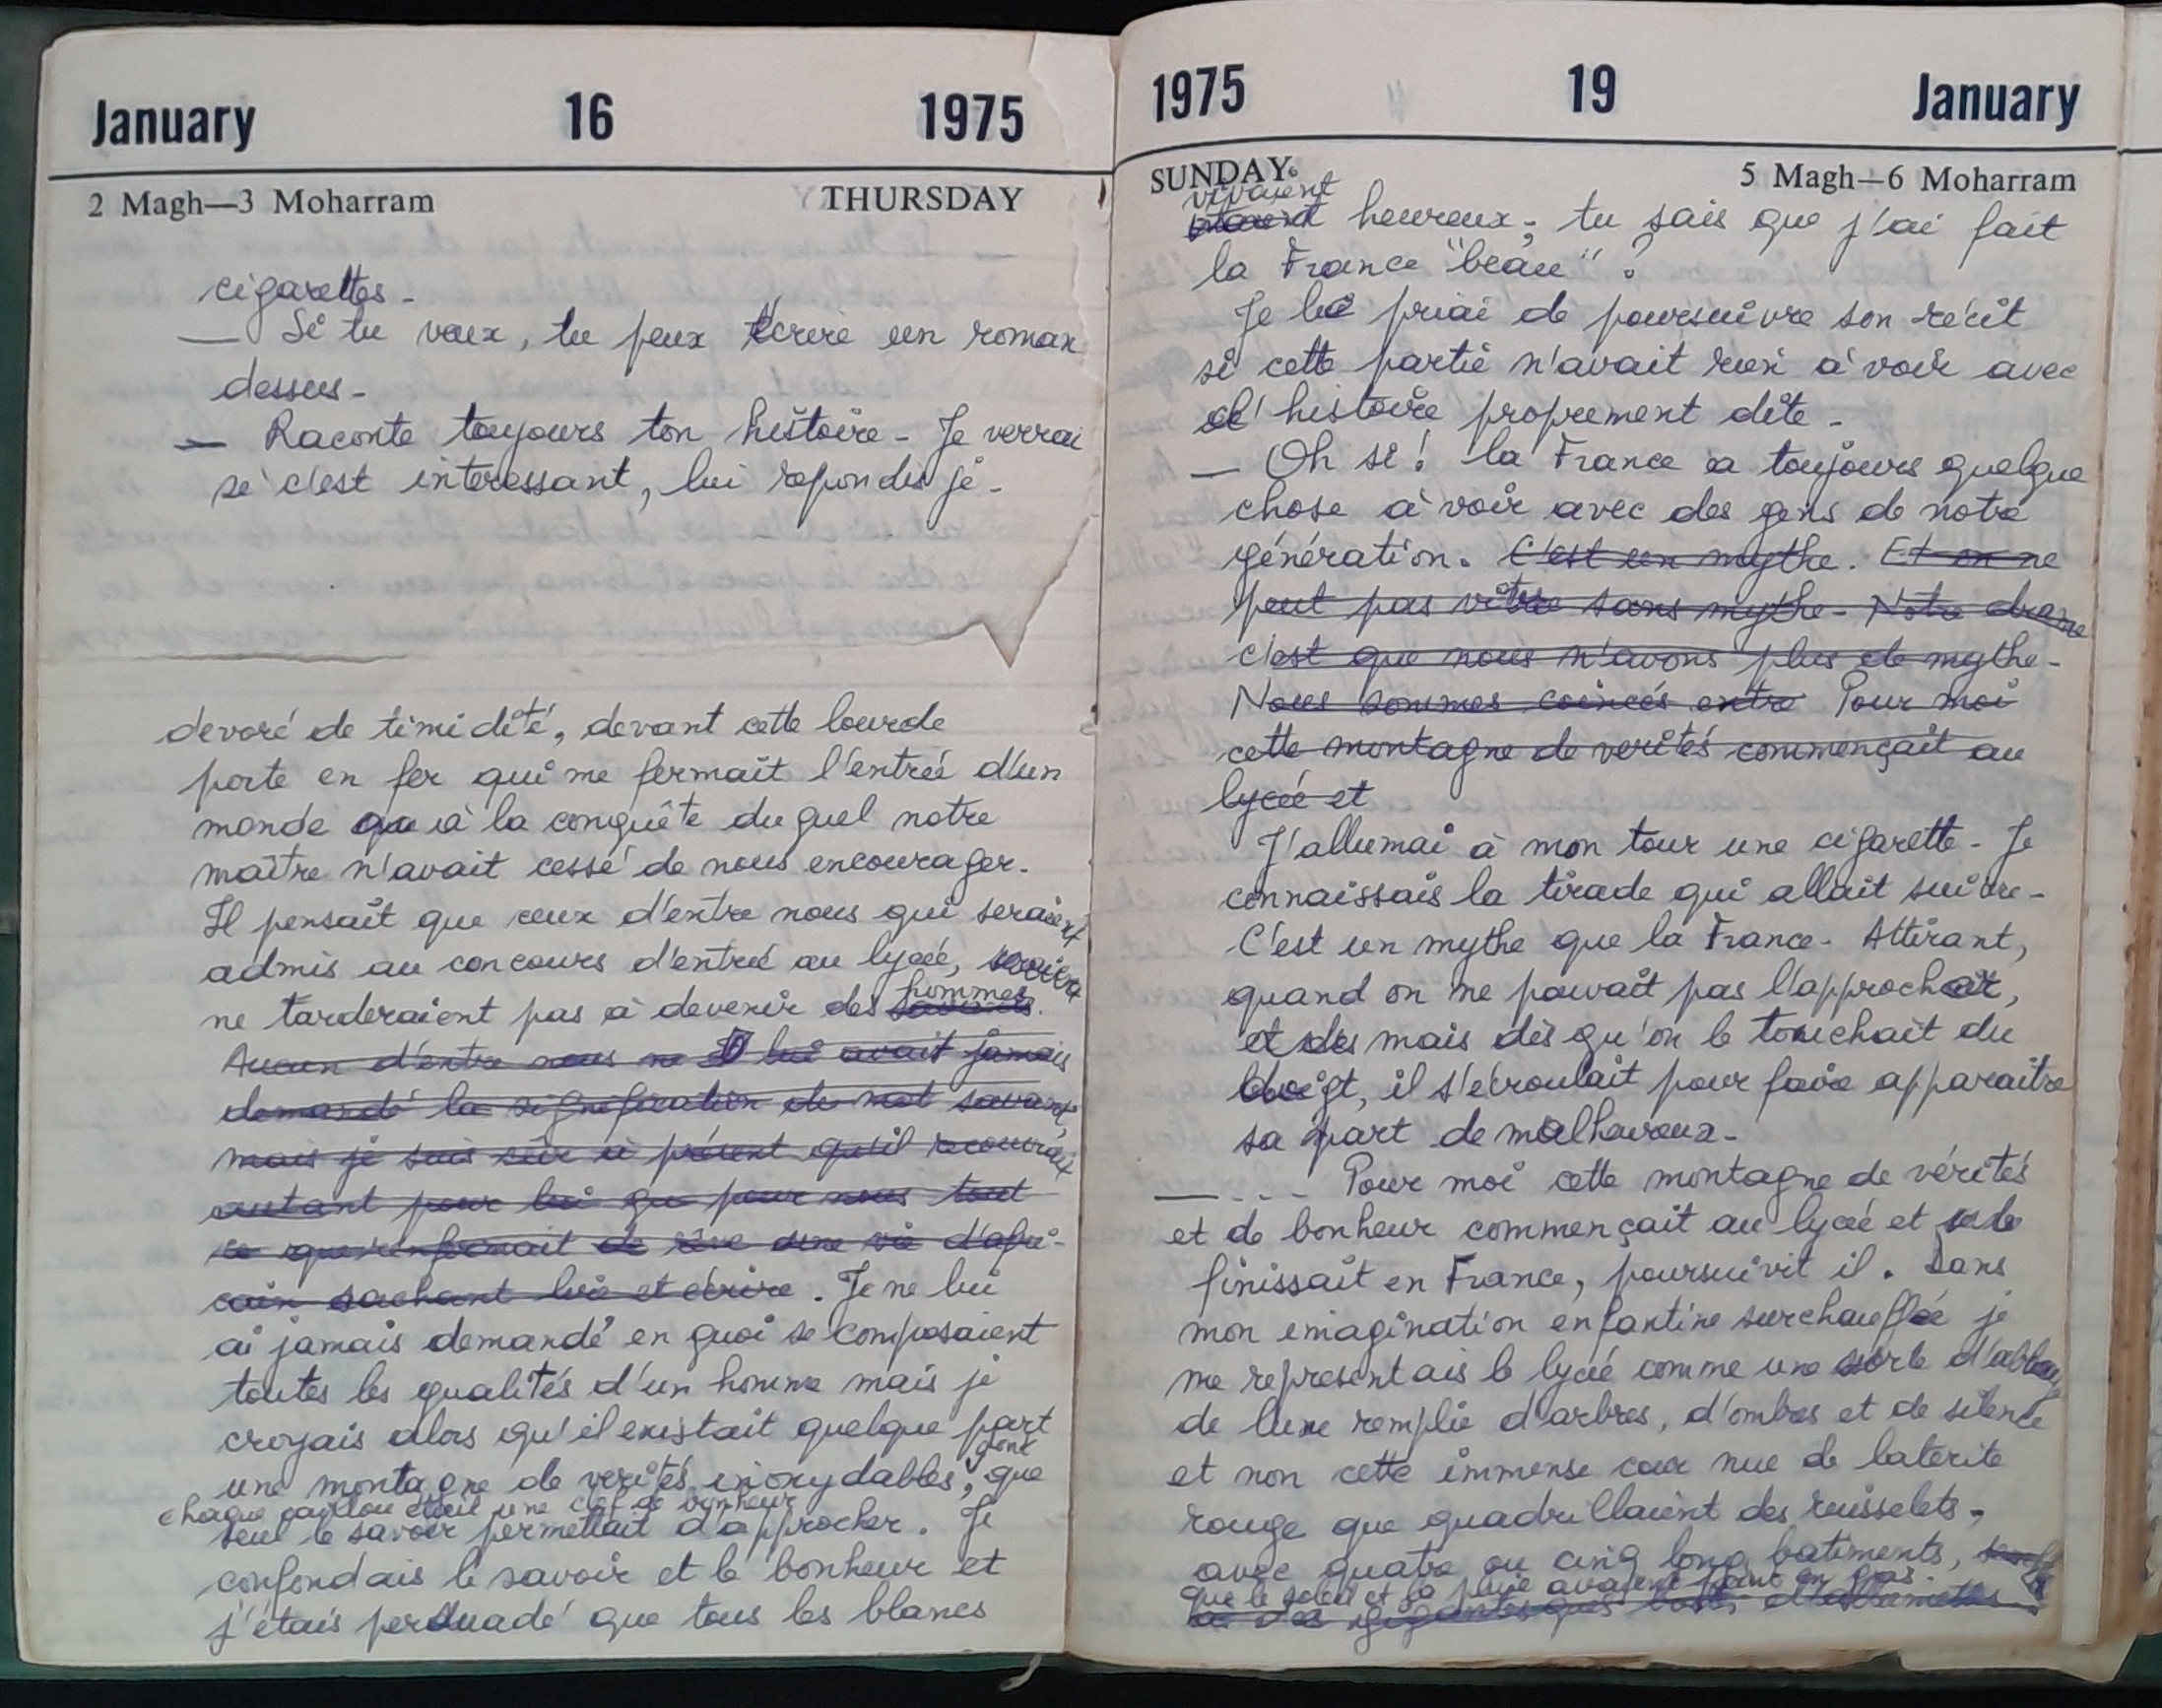 January 16 1975
2 Magh—3 Moharram THURSDAY
cigarettes -
— Si tu veux, tu peux écrire un roman
dessus -
— Raconte toujours ton histoire - Je verrai
si c'est interessant, lui repondis je -
devoré de timidité, devant cette lourde
porte en fer qui me fermait l'entrée d'un
monde à la conquête duquel notre
maître n'avait cessé de nous encourager.
Il pensait que ceux d'entre nous qui seraient
admis au concours d'entrée au lycée, seraient
hommes
ne tarderaient pas à devenir des savants.
Aucun d'entre nous ne lui avait jamais
demandé la signification du mot savant,
mais je suis sûr à présent qu'il recouvrait
autant pour lui que pour nous tout
ce que renfermait de rêve une vie d'afri-
cain sachant lire et écrire. Je ne lui
ai jamais demandé en quoi se composaient
toutes les qualités d'un homme mais je
croyais alors qu'il existait quelque part
dont
une montagne de verités inoxydables, que
chaque caillou était une clef de bonheur
seul le savoir permettait d'approcher. Je
confondais le savoir et le bonheur et
j'étais persuadé que tous les blancs
1975 19 January
SUNDAY 5 Magh—6 Moharram
vivaient
étaient heureux; tu sais que j'ai fait
la France "beau" ?
Je le priai de poursuivre son récit
si cette partie n'avait rien à voir avec
l'histoire proprement dite -
— Oh si ! la France a toujours quelque
chose à voir avec des gens de notre
génération. C'est un mythe. Et on ne
peut pas vivre sans mythe - Notre drame
c'est que nous n'avons plus de mythe -
Nous sommes coincés entre Pour moi
cette montagne de verités commençait au
lycée et
J'allumai à mon tour une cigarette - Je
connaissais la tirade qui allait suivre -
C'est un mythe que la France - Attirant,
quand on ne pouvait pas l'approcher,
et des mais dès qu'on le touchait du
doigt, il s'écroulait pour faire apparaitre
sa part de malheureux -
— . . . Pour moi cette montagne de vérités
et de bonheur commençait au lycée et
finissait en France, poursuivit il. Dans
mon imagination enfantine surchauffée je
me representais le lycée comme une sorte d'abbaye
de luxe remplie d'arbres, d'ombres et de silence
et non cette immense cour nue de laterite
rouge que quadrillaient des ruisselets,
avec quatre ou cinq long batiments,
que le soleil et la pluie avaient peint en gris
gigantesques boites d'allumettes